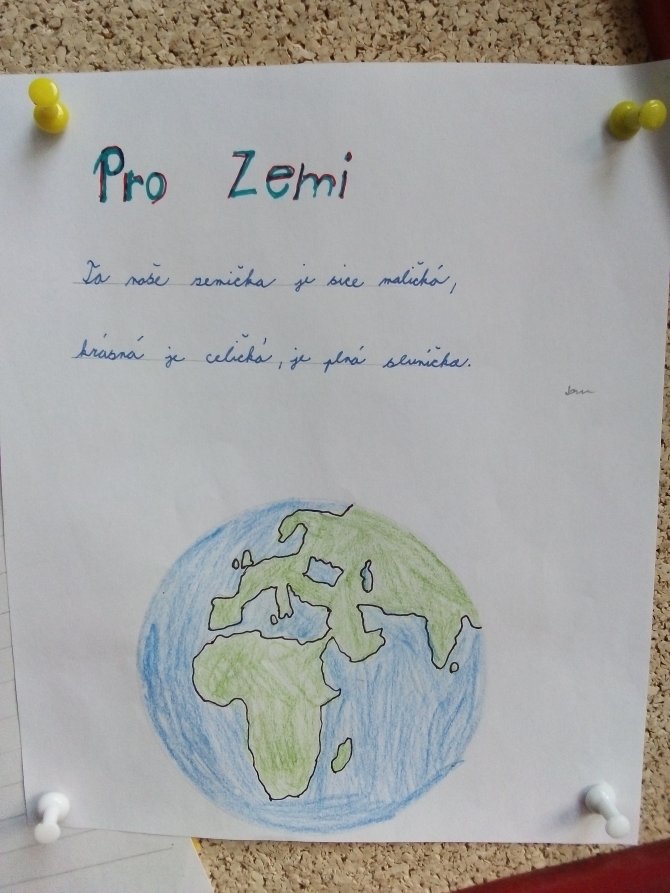 Pro Zemi
Ta naše zemička je sice maličká,
krásná je celičká, je plná sluníčka.